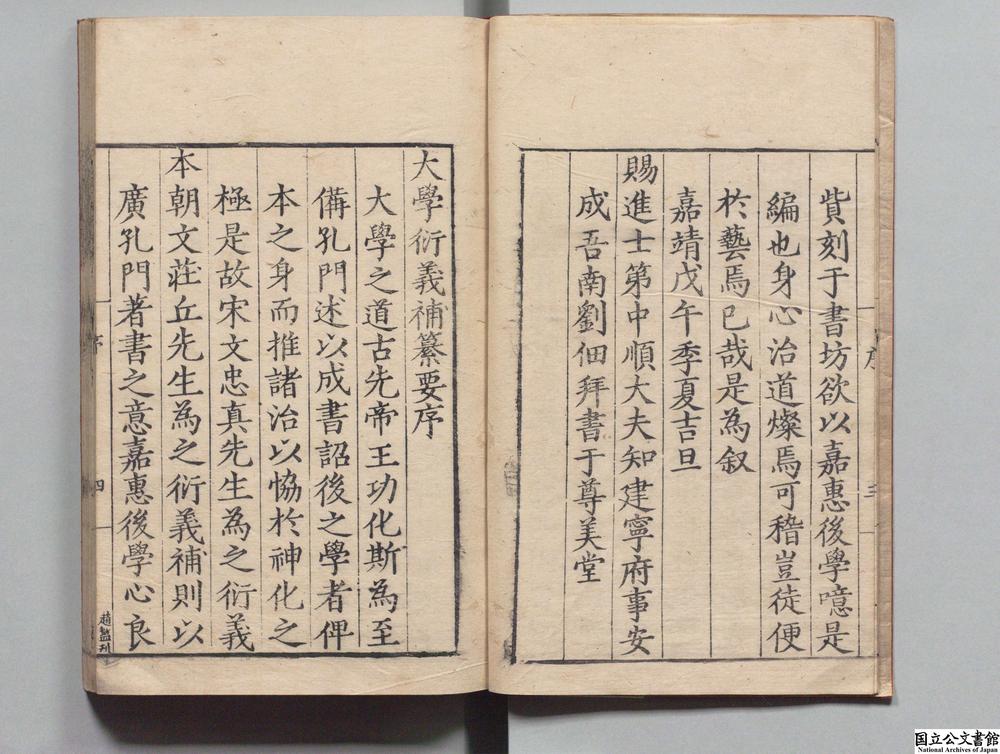 貲刻于書坊欲以嘉惠後學噫是
編也身心治道燦焉可稽豈徒便
於藝焉已哉是為叙
嘉靖戊午季夏吉旦
賜進士第中順大夫知建寧府事安
成吾南劉佃拜書于尊美堂
大學衍義補纂要序
大學之道古先帝王功化斯為至
備孔門述以成書詔後之學者俾
本之身而推諸治以恊於神化之
極是故宋文忠真先生為之衍義
本朝文莊丘先生為之衍義補則以
廣孔門著書之意嘉惠後學心良
序
四
国立公文書館
National Archives of Japan